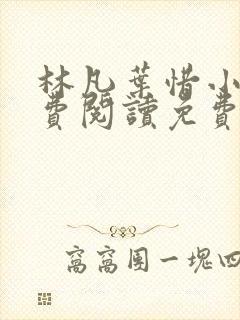 林凡葉惜小
費閱讀免費
窩窩團一塊四